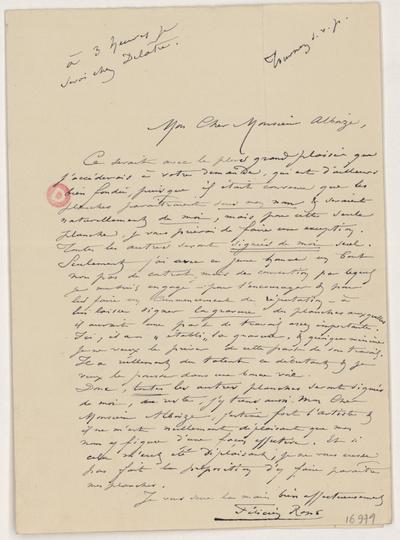 à 3 heures je
serai chez Delâtre.
Tournez s.v.p.
Mon Cher Monsieur Alboize,
Ce serait avec le plus grand plaisir que
j'accéderais à votre demande, qui est d'ailleurs
bien fondée, puisque il était convenu que les
planches paraîtraient sous mon nom & seraient
naturellement de moi, mais, pour cette seule
planche, je vous prierai de faire une exception.
Toutes les autres seront signées de moi seul.
Seulement j'ai avec ce jeune homme un
non pas de contrat, mais de convention par laquelle
je m'étais engagé pour l'encourager & pour
lui faire un commencement de réputation à
lui laisser signer la gravure des planches auxquelles
il aurait une part de travail assez importante.
Ici, il a "établi" la gravure, &
je ne veux le priver de cette partie de son travail.
Il a réellement du talent ce débutant & je
veux le pousser dans une bonne voie.
Donc, toutes les autres planches seront signées
de moi, du reste j'y tiens aussi. Mon Cher
Monsieur Alboize, j'estime fort l'artiste &
il ne m'est nullement déplaisant que mon
nom y figure d'une façon effective. Et si
cela m'eut été déplaisant, je ne vous eusse
pas fait la proposition d'y faire paraître
mes planches.
Je vous serre la main bien affectueusement
Félicien Rops
16979